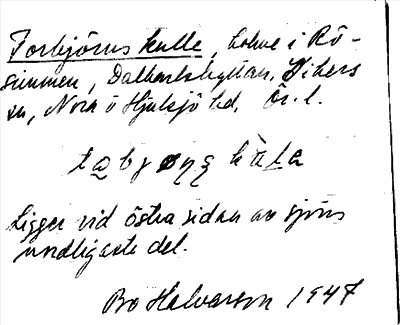 Torbjörns kulle, holme i Rö-
simmen, Dalkarlshyttan, Vikers
sn, Nora o Hjulsjö hd. Ör. l.
Ligger vid östra sidan av sjöns
nordligaste del.
Bo Halvarson 1947